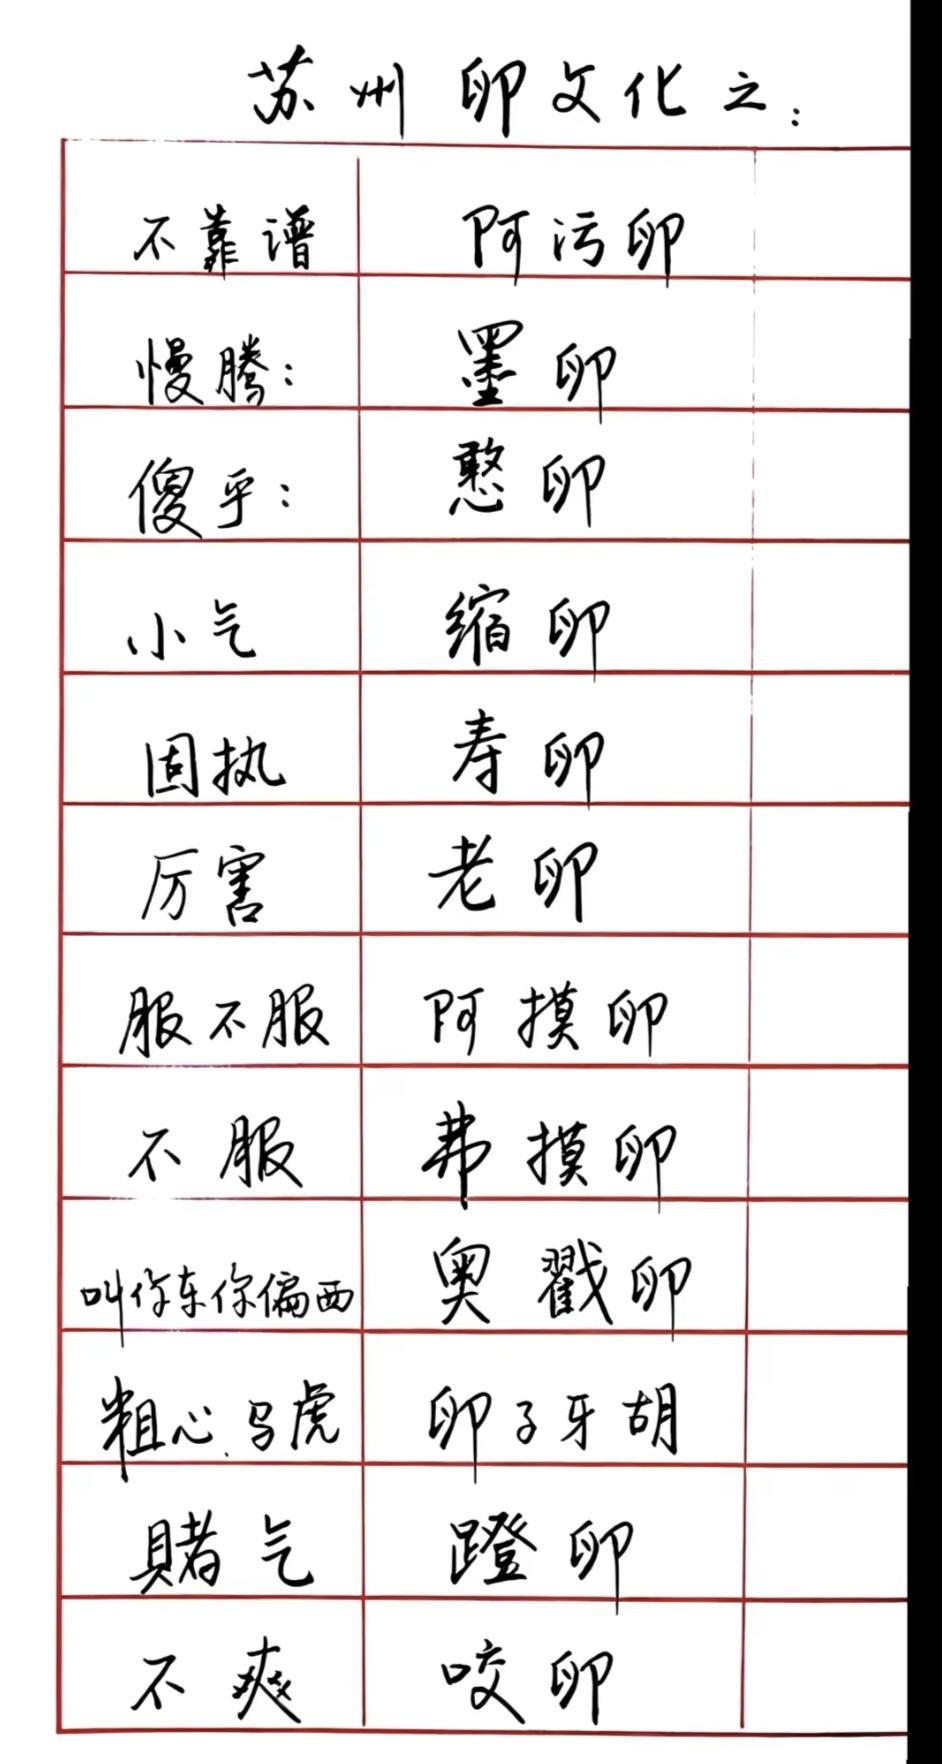 苏州卵文化之：
不靠谱 阿污卵
慢腾： 墨卵
傻乎： 憨卵
小气 缩卵
固执 寿卵
厉害 老卵
服不服 阿摸卵
不服 弗摸卵
叫你东你偏西 奥戳卵
粗心.马虎 卵子牙胡
赌气 蹬卵
不爽 咬卵